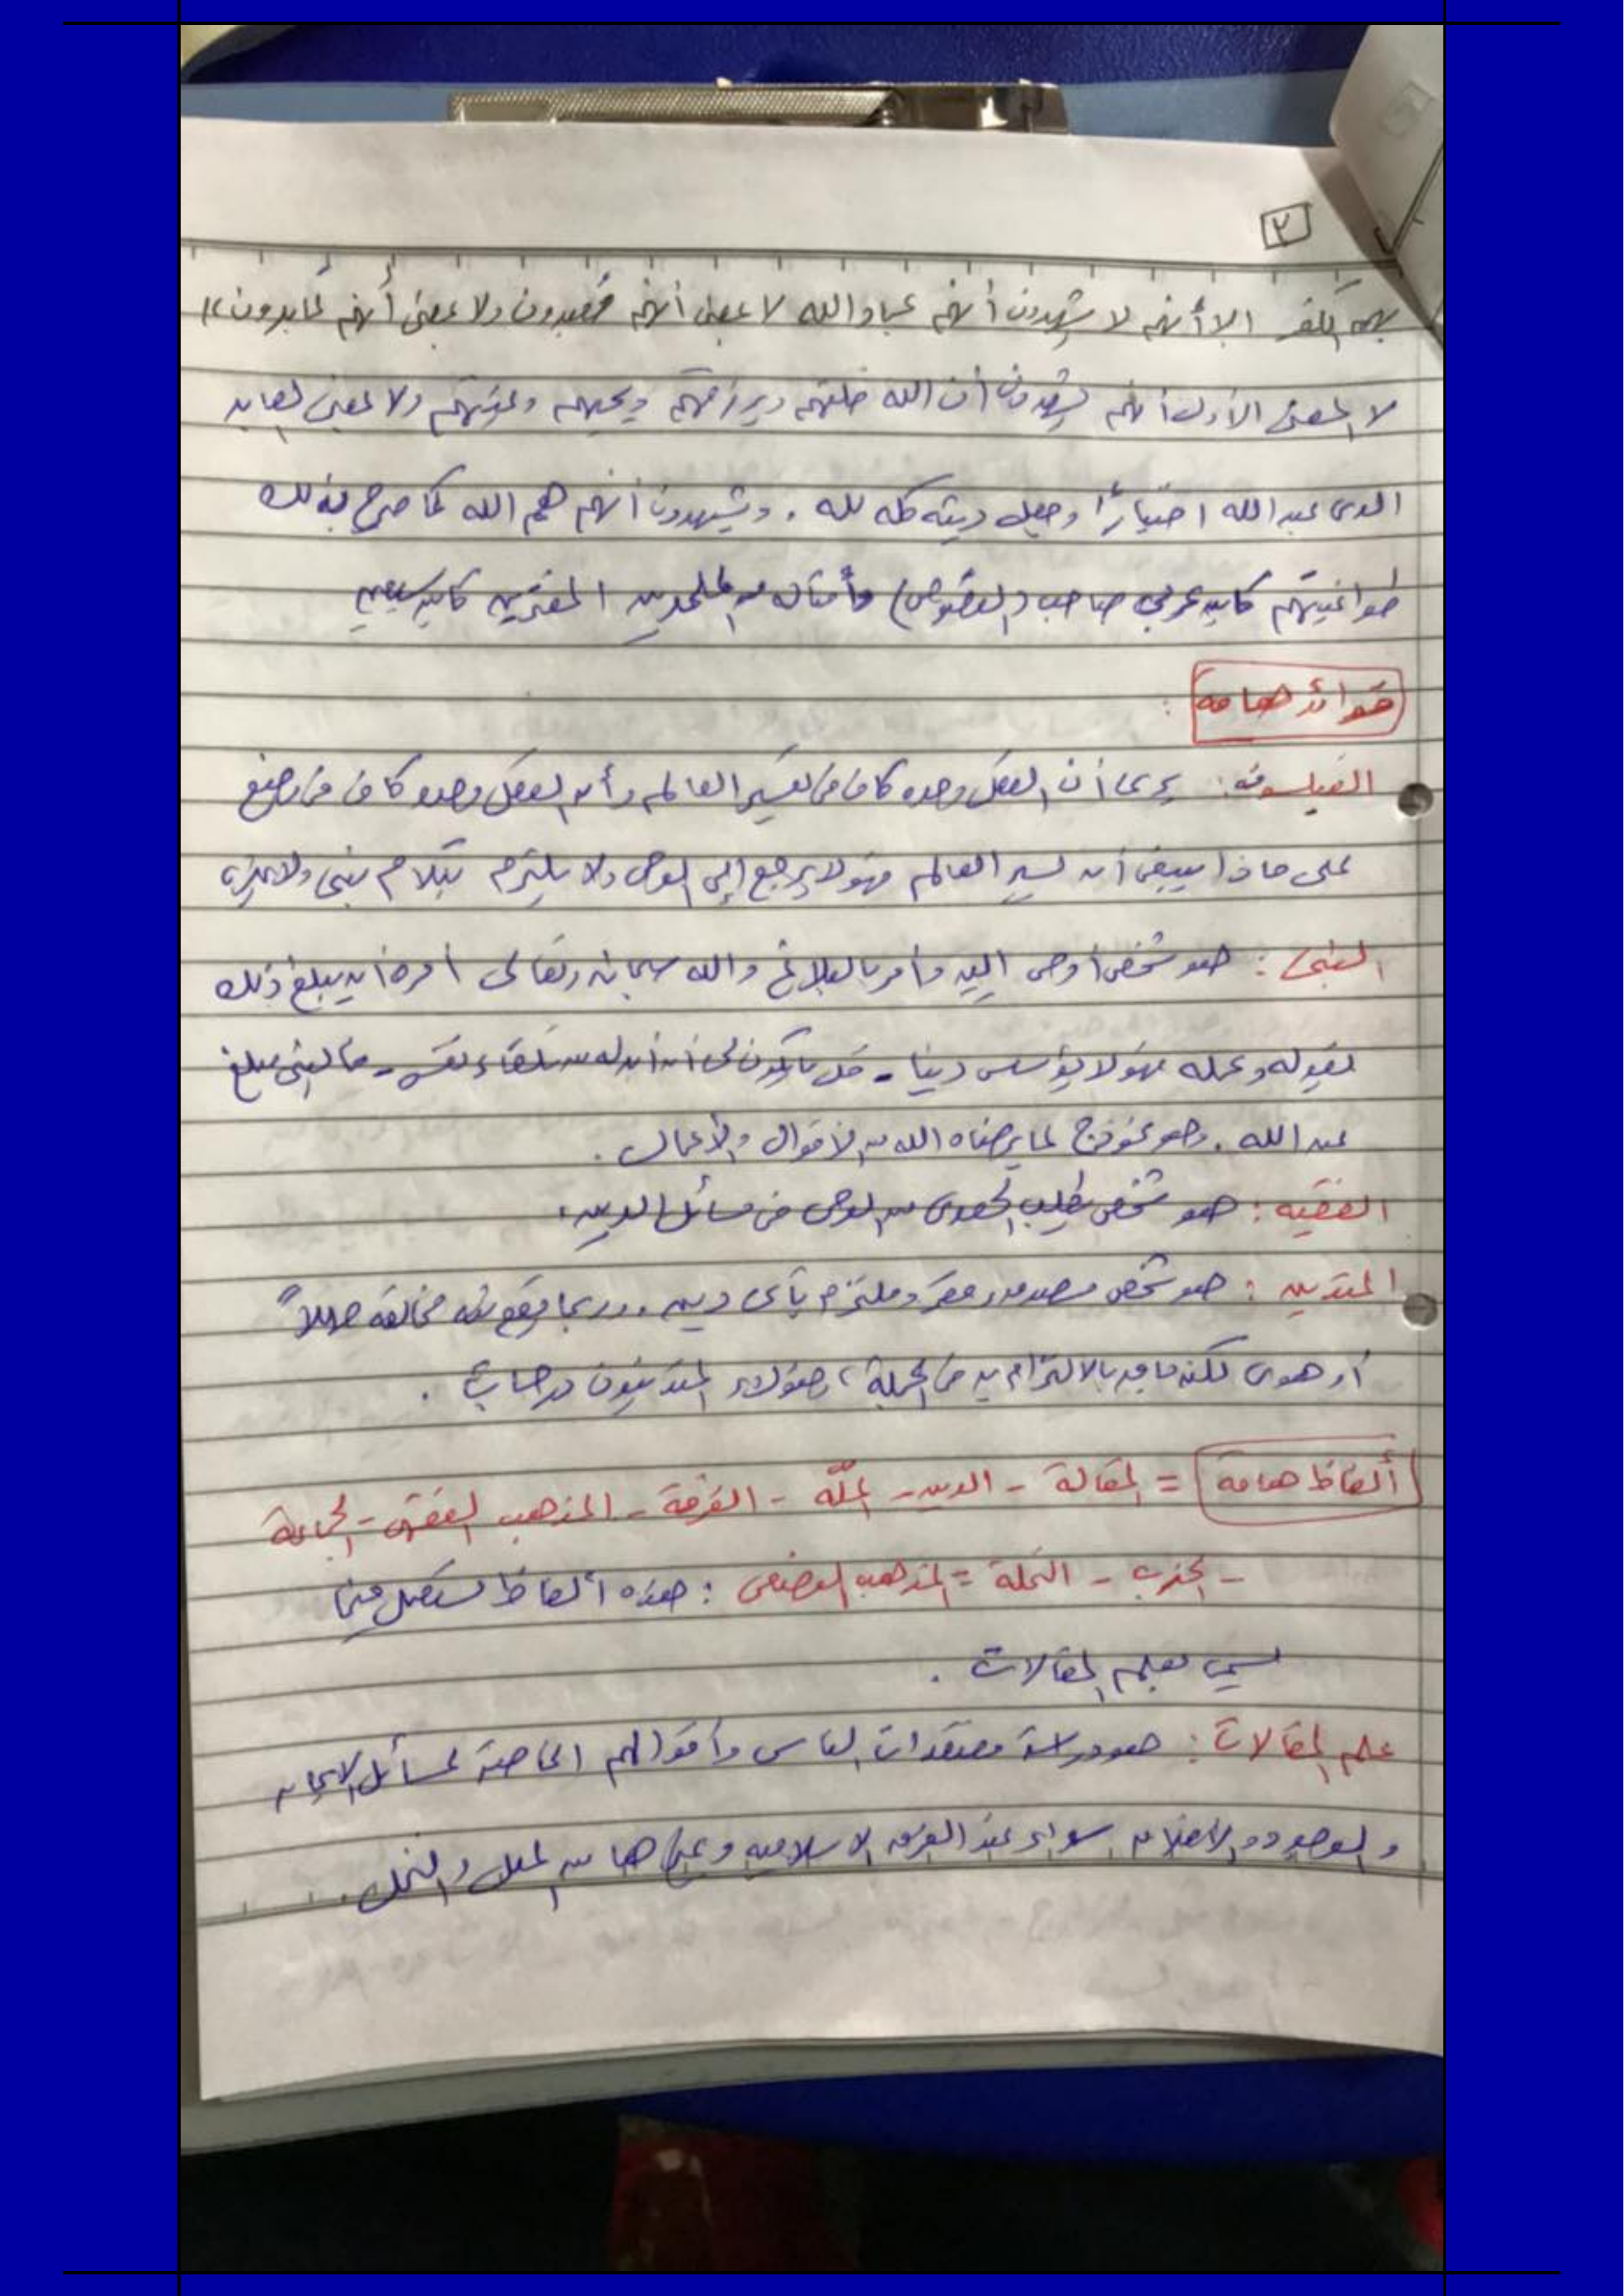 ٢
بهم الكفر إلا أنهم لا يشهدون أنهم عباد الله لا بمعنى أنهم معبدون ولا بمعنى أنهم عابدون»
لا بالمعنى الأول أنهم يشهدون أن الله خلقهم ويرزقهم ويحييهم ويميتهم ولا بمعنى العابد
الذى عبد الله اختيارًا وجعل دينه كله لله . ويشهدون أنهم هم الله كما صرح بذلك
طواغيتهم كابن عربي صاحب (الفصوص) وأمثاله من الملحدين المفترين كابن سبعين
فوائد هامة :
الفيلسوف : يرى أن العقل وحده كاف فى تفسير العالم وأن العقل وحده كاف فى وضع
على ماذا ينبغى أن يسير العالم فهو لا يرجع إلى الوحى ولا يلتزم بكلام نبى ولا
النبى : هو شخص أوحى إليه وأمر بالبلاغ والله سبحانه وتعالى أمره أن يبلغ ذلك
بقوله وعمله فهو لا يؤسس دينا - قل ما يكون لى أن أبدله من تلقاء نفسى - فالنبى مبلغ
عن الله . وهو نموذج لما يرضاه الله من الأقوال والأعمال .
الفقيه : هو شخص يطلب الهدى من الوحى فى مسائل الدين .
المتدين : هو شخص مصدق مقر وملتزم بأى دين . وربما يقع منه مخالفة جهلاً
أو هوى لكنه بالالتزام به فى الجملة ، وهؤلاء المتدينون درجات .
ألفاظ هامة = المقالة - الدين - الملّة - الفرقة - المذهب الفقهى - الجماعة
- الحزب - النحلة = المذهب الوضعى : هذه ألفاظ تستعمل فيما
يسمى بعلم المقالات .
علم المقالات : هو دراسة معتقدات الناس وأقوالهم الخاصة لمسائل الإيمان
و الوجود و سواء عند الفرق الإسلامية وغيرها من الملل والنحل .